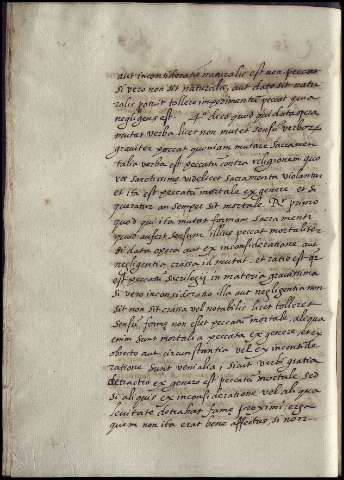 aut inconsideratio naturalis est non peccat
si vero non sit naturalis, aut dato sit natu
ralis potuit tollere impedimenta peccat quia
negligens est. 4º dico quod qui data opera
mutat verba licet non mutet sensū verborū
graviter peccat quoniam mutare Sacramen
talia verba est peccatū contra religionem quo
res sanctissimę videlicet sacramenta violantur
et ita est peccatū mortale ex genere et si
queratur an semper sit mortale Rº primo
quod qui ita mutat formam sacramenti
quod aufert sensum illius peccat mortaliter
si data opera aut ex inconsideratione aut
negligentia crassa id mutat et ratio est qr
est peccatū sacrilegij in materia gravissima
si vero inconsideratio illa aut negligentia non
sit non sit crassa vel notabilis licet tolleret
sensū formę non esset peccatū mortale, aliqua
enim sunt mortalia peccata ex genere, et ex
obiecto aut circunstantia vel ex inconside
ratione sunt venialia, sicut verbi gratia
detractio ex genere est peccatū mortale sed
si aliquis ex inconsideratione vel aliqua
levitate detrahat famę proximi, erga
quem non ita erat bene affectus, si non